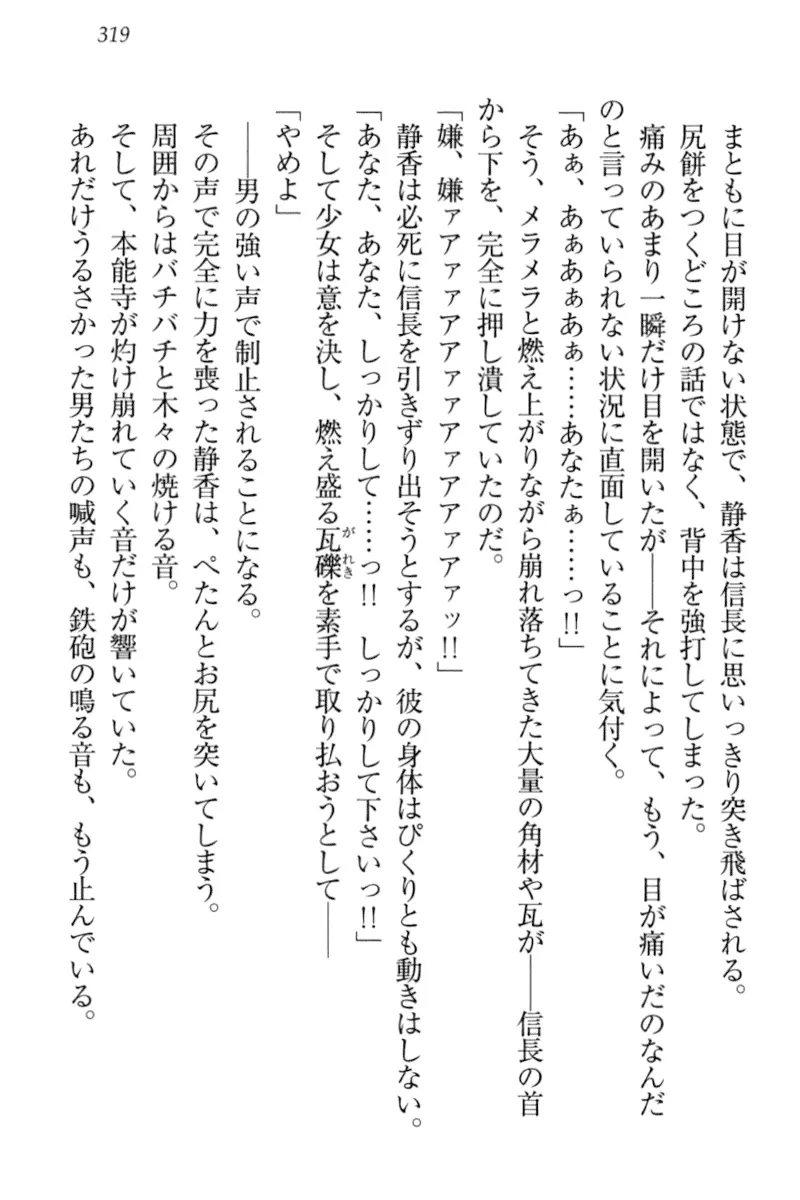 319
まともに目が開けない状態で、静香は信長に思いっきり突き飛ばされる。
尻餅をつくどころの話ではなく、背中を強打してしまった。
痛みのあまり一瞬だけ目を開いたが――それによって、もう、目が痛いだのなんだ
のと言っていられない状況に直面していることに気付く。
「あぁ、あぁあぁあぁ……あなたぁ……っ!!」
そう、メラメラと燃え上がりながら崩れ落ちてきた大量の角材や瓦が――信長の首
から下を、完全に押し潰していたのだ。
「嫌、嫌ァアァァアアァァアァアアァアァッ!!」
静香は必死に信長を引きずり出そうとするが、彼の身体はぴくりとも動きはしない。
「あなた、あなた、しっかりして……っ!!　しっかりして下さいっ!!」
そして少女は意を決し、燃え盛る瓦礫を素手で取り払おうとして――
がれき
「やめよ」
――男の強い声で制止されることになる。
その声で完全に力を喪った静香は、ぺたんとお尻を突いてしまう。
周囲からはバチバチと木々の焼ける音。
そして、本能寺が灼け崩れていく音だけが響いていた。
あれだけうるさかった男たちの喊声も、鉄砲の鳴る音も、もう止んでいる。